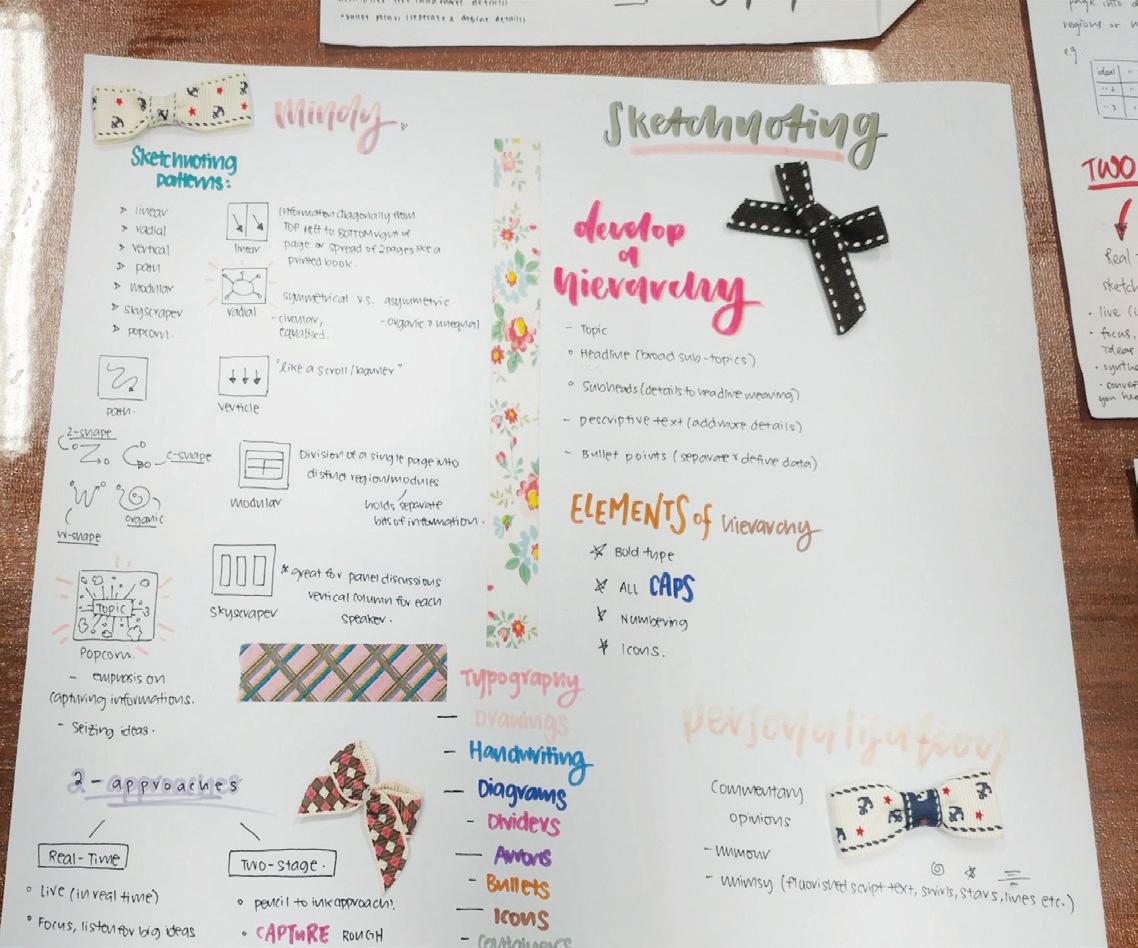 • Bullet points (seperate & define details)
page into
regions or
eg.
ideal
Mindy
Sketchnoting
patterns:
> linear
> radial
> vertical
> path
> modular
> skyscraper
> popcorn.
linear
Information diagonally from
TOP left to BOTTOM right of
page or spread of 2 pages like a
printed book.
radial
symmetrical v.s. asymmetric
- circular,
equalised.
- organic & unequal
path.
verticle
"like a scroll/banner"
Z-shape
C-shape
W-shape
organic
modular
Division of a single page into
distinct region/modules
holds separate
bits of information.
Skyscraper
* great for panel discussions
vertical column for each
speaker.
TOPIC
Popcorn.
- emphasis on
capturing informations.
- Seizing ideas.
2-approaches
Real-Time
° Live (in real time)
° Focus, listen for big ideas
Two-stage.
° pencil to ink approach.
° CAPTURE ROUGH
Sketchnoting
develop
a
hierarchy
- Topic
° Headline (broad sub-topics)
° Subheads (details to headline weaving)
- Descriptive text (add more details)
- Bullet points (separate & define data)
ELEMENTS of hierarchy
* Bold type
* ALL CAPS
* Numbering
* Icons.
Typography
— Drawings
- Handwriting
— Diagrams
- Dividers
— Arrows
- Bullets
— Icons
- Containers
personalisation
Commentary
opinions
- humour
- whimsy (flourished script text, swirls, stars, lines etc.)
TWO
Real-
sketch
• live (i
• focus,
ideas
• synthe
• conver
you hea